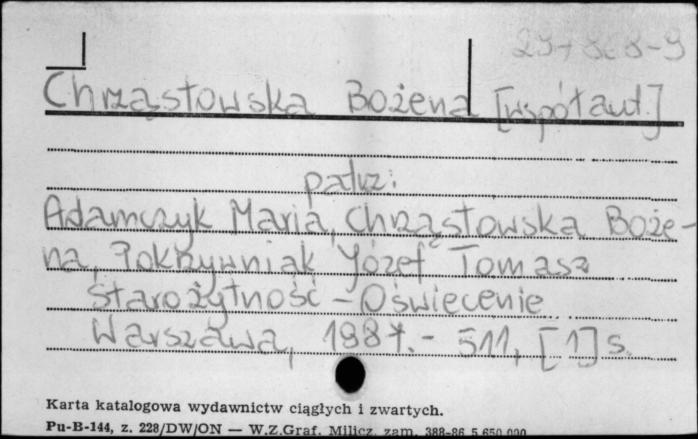 Chrząstowska Bożena [współaut.]
patrz:
Adamczyk Maria, Chrząstowska Boże-
na, Pokrzywniak Józef Tomasz
Starożytność – Oświecenie
Warszawa, 1987. – 511, [1] s.
Karta katalogowa wydawnictw ciągłych i zwartych.
Pu-B-144, z. 228/DW/ON — W.Z.Graf. Milicz, zam. 388-86 5 650 000